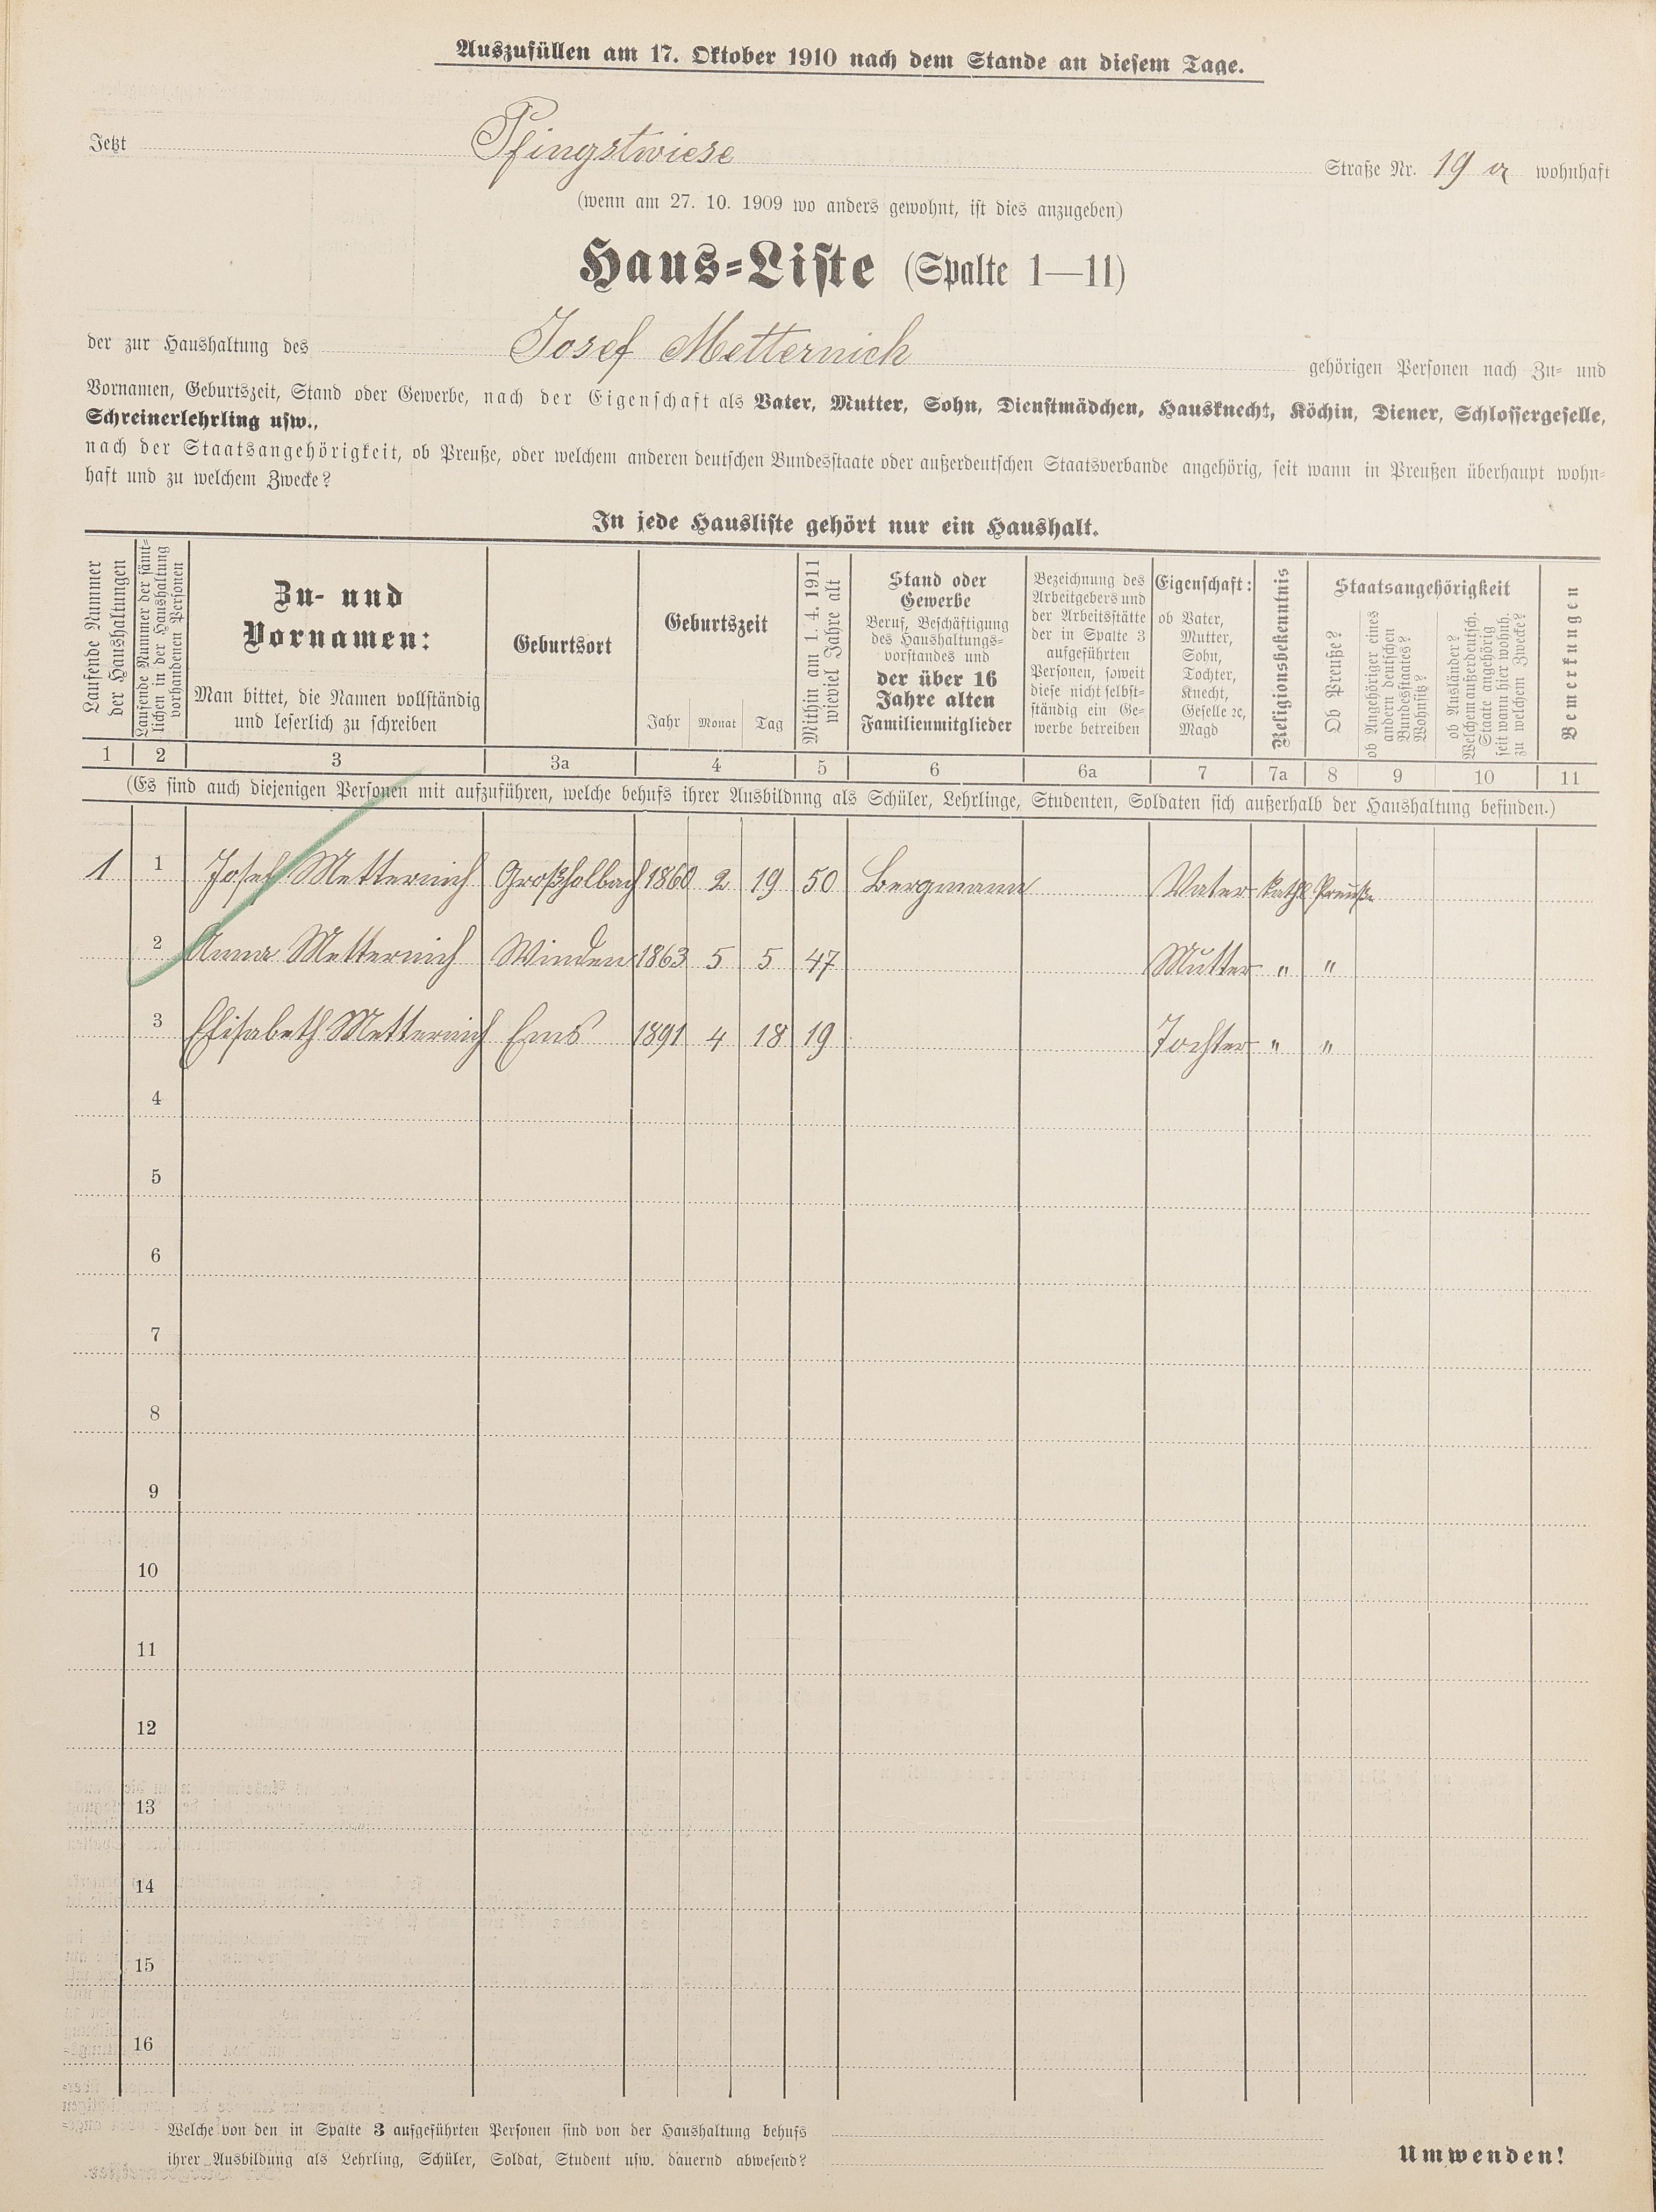 Auszufüllen am 17. Oktober 1910 nach dem Stande an diesem Tage.
Jetzt Pfingstwiese Straße Nr. 19 a wohnhaft
(wenn am 27. 10. 1909 wo anders gewohnt, ist dies anzugeben)
Haus-Liste (Spalte 1—11)
der zur Haushaltung des Josef Metternich gehörigen Personen nach Zu- und
Vornamen, Geburtszeit, Stand oder Gewerbe, nach der Eigenschaft als Vater, Mutter, Sohn, Dienstmädchen, Hausknecht, Köchin, Diener, Schlossergeselle,
Schreinerlehrling usw.,
nach der Staatsangehörigkeit, ob Preuße, oder welchem anderen deutschen Bundesstaate oder außerdeutschen Staatsverbande angehörig, seit wann in Preußen überhaupt wohn-
haft und zu welchem Zwecke?
In jede Hausliste gehört nur ein Haushalt.
Laufende Nummer
der Haushaltungen
Laufende Nummer der sämt-
lichen in der Haushaltung
vorhandenen Personen
Zu- und
Vornamen:
Man bittet, die Namen vollständig
und leserlich zu schreiben
Geburtsort
Geburtszeit
Jahr Monat Tag
Mithin am 1. 4. 1911
wieviel Jahre alt
Stand oder
Gewerbe
Beruf, Beschäftigung
des Haushaltungs-
vorstandes und
der über 16
Jahre alten
Familienmitglieder
Bezeichnung des
Arbeitgebers und
der Arbeitsstätte
der in Spalte 3
aufgeführten
Personen, soweit
diese nicht selbst-
ständig ein Ge-
werbe betreiben
Eigenschaft:
ob Vater,
Mutter,
Sohn,
Tochter,
Knecht,
Geselle ꝛc,
Magd
Religionsbekenntnis
Staatsangehörigkeit
Ob Preuße?
ob Angehöriger eines
andern deutschen
Bundesstaates?
Wohnsitz?
ob Ausländer?
Welchem außerdeutsch.
Staate angehörig
seit wann hier wohnh.
zu welchem Zwecke?
Bemerkungen
1 2 3 3a 4 5 6 6a 7 7a 8 9 10 11
(Es sind auch diejenigen Personen mit aufzuführen, welche behufs ihrer Ausbildung als Schüler, Lehrlinge, Studenten, Soldaten sich außerhalb der Haushaltung befinden.)
1 1 Josef Metternich Großholbach 1860 2 19 50 Bergmann Vater kath. Preuße
2 Anna Metternich Winden 1863 5 5 47 Mutter " "
3 Elisabeth Metternich Ems 1891 4 18 19 Tochter " "
4
5
6
7
8
9
10
11
12
13
14
15
16
Welche von den in Spalte 3 aufgeführten Personen sind von der Haushaltung behufs
ihrer Ausbildung als Lehrling, Schüler, Soldat, Student usw. dauernd abwesend?
Umwenden!